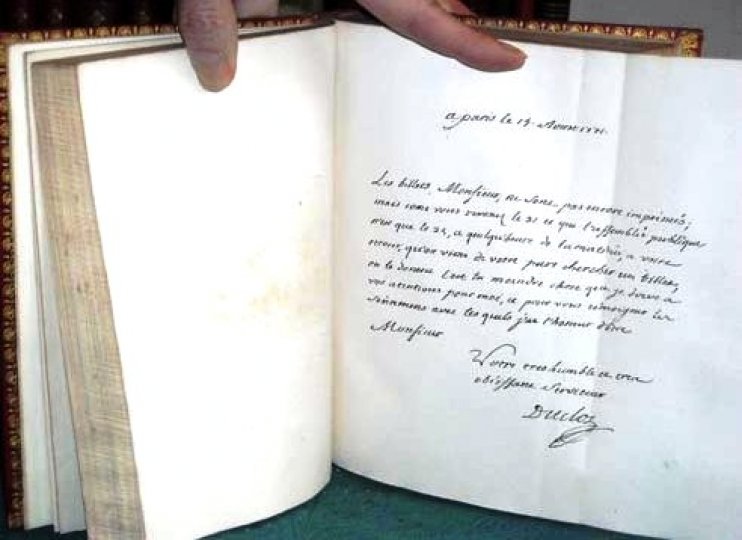 a paris le 15. Aoust 1771.
Les billets, Monsieur, ne sont pas encore imprimés;
mais come vous revenez le 21 et que l'assemblée publique
n'est que le 24, a quelqu'heure de la matinée, a votre
retour, qu'on viene de votre part chercher un billet,
on le donnera c'est la moindre chose que je doive a
vos atentions pour moi, et pour vous temoigner les
sentimens avec les quels j'ai l'honeur d'être
Monsieur
Votre tres humble et tres
obéissant serviteur
Duclos